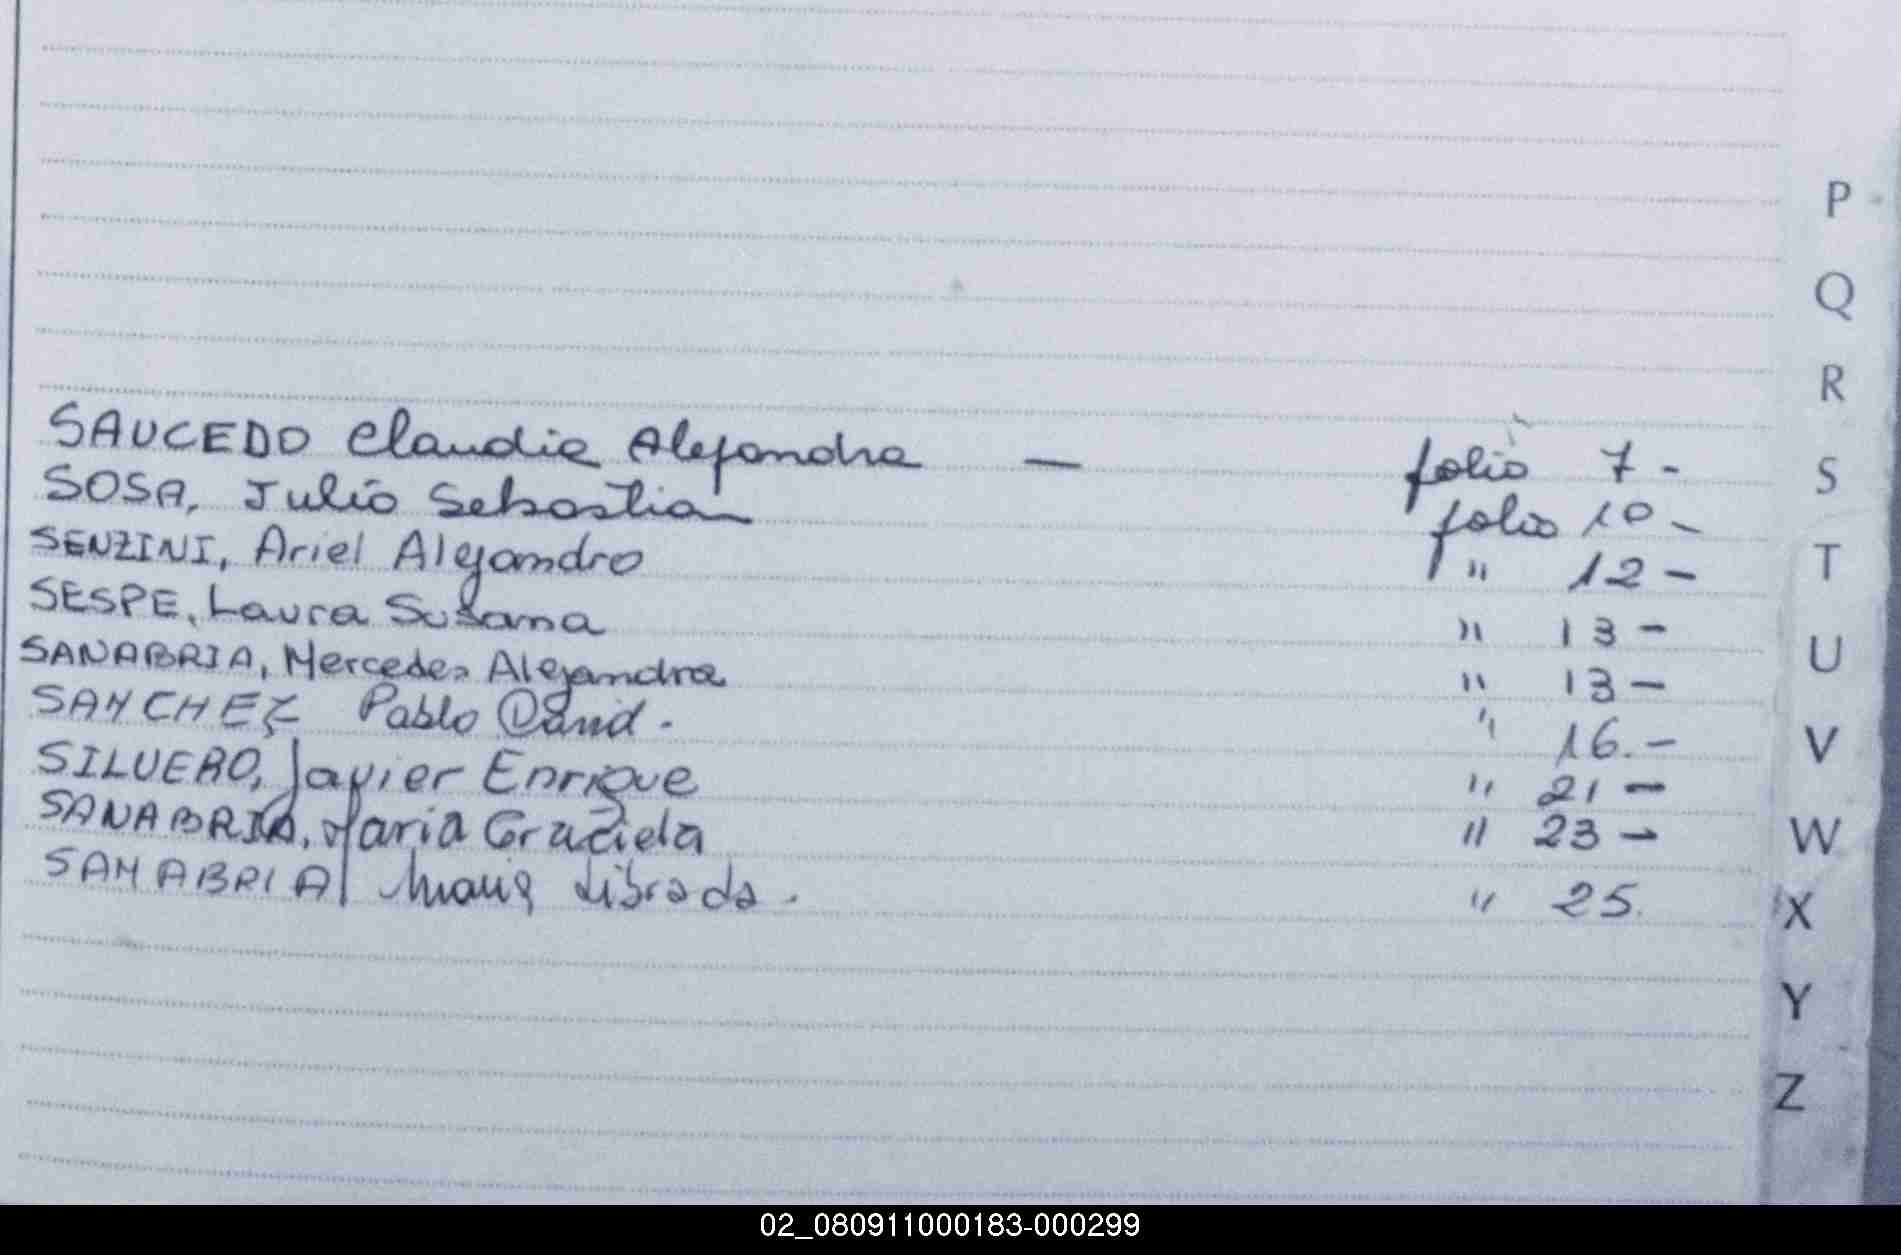 SAUCEDO Claudia Alejandra — folio 7 -
SOSA, Julio Sebastian folio 10 -
SENZINI, Ariel Alejandro " 12 -
SESPE, Laura Susana " 13 -
SANABRIA, Mercedes Alejandra " 13 -
SANCHEZ Pablo David. " 16. -
SILVERO, Javier Enrique " 21 -
SANABRIA, Maria Graciela " 23 -
SANABRIA Maria Librada. " 25.
P
Q
R
S
T
U
V
W
X
Y
Z
02_080911000183-000299